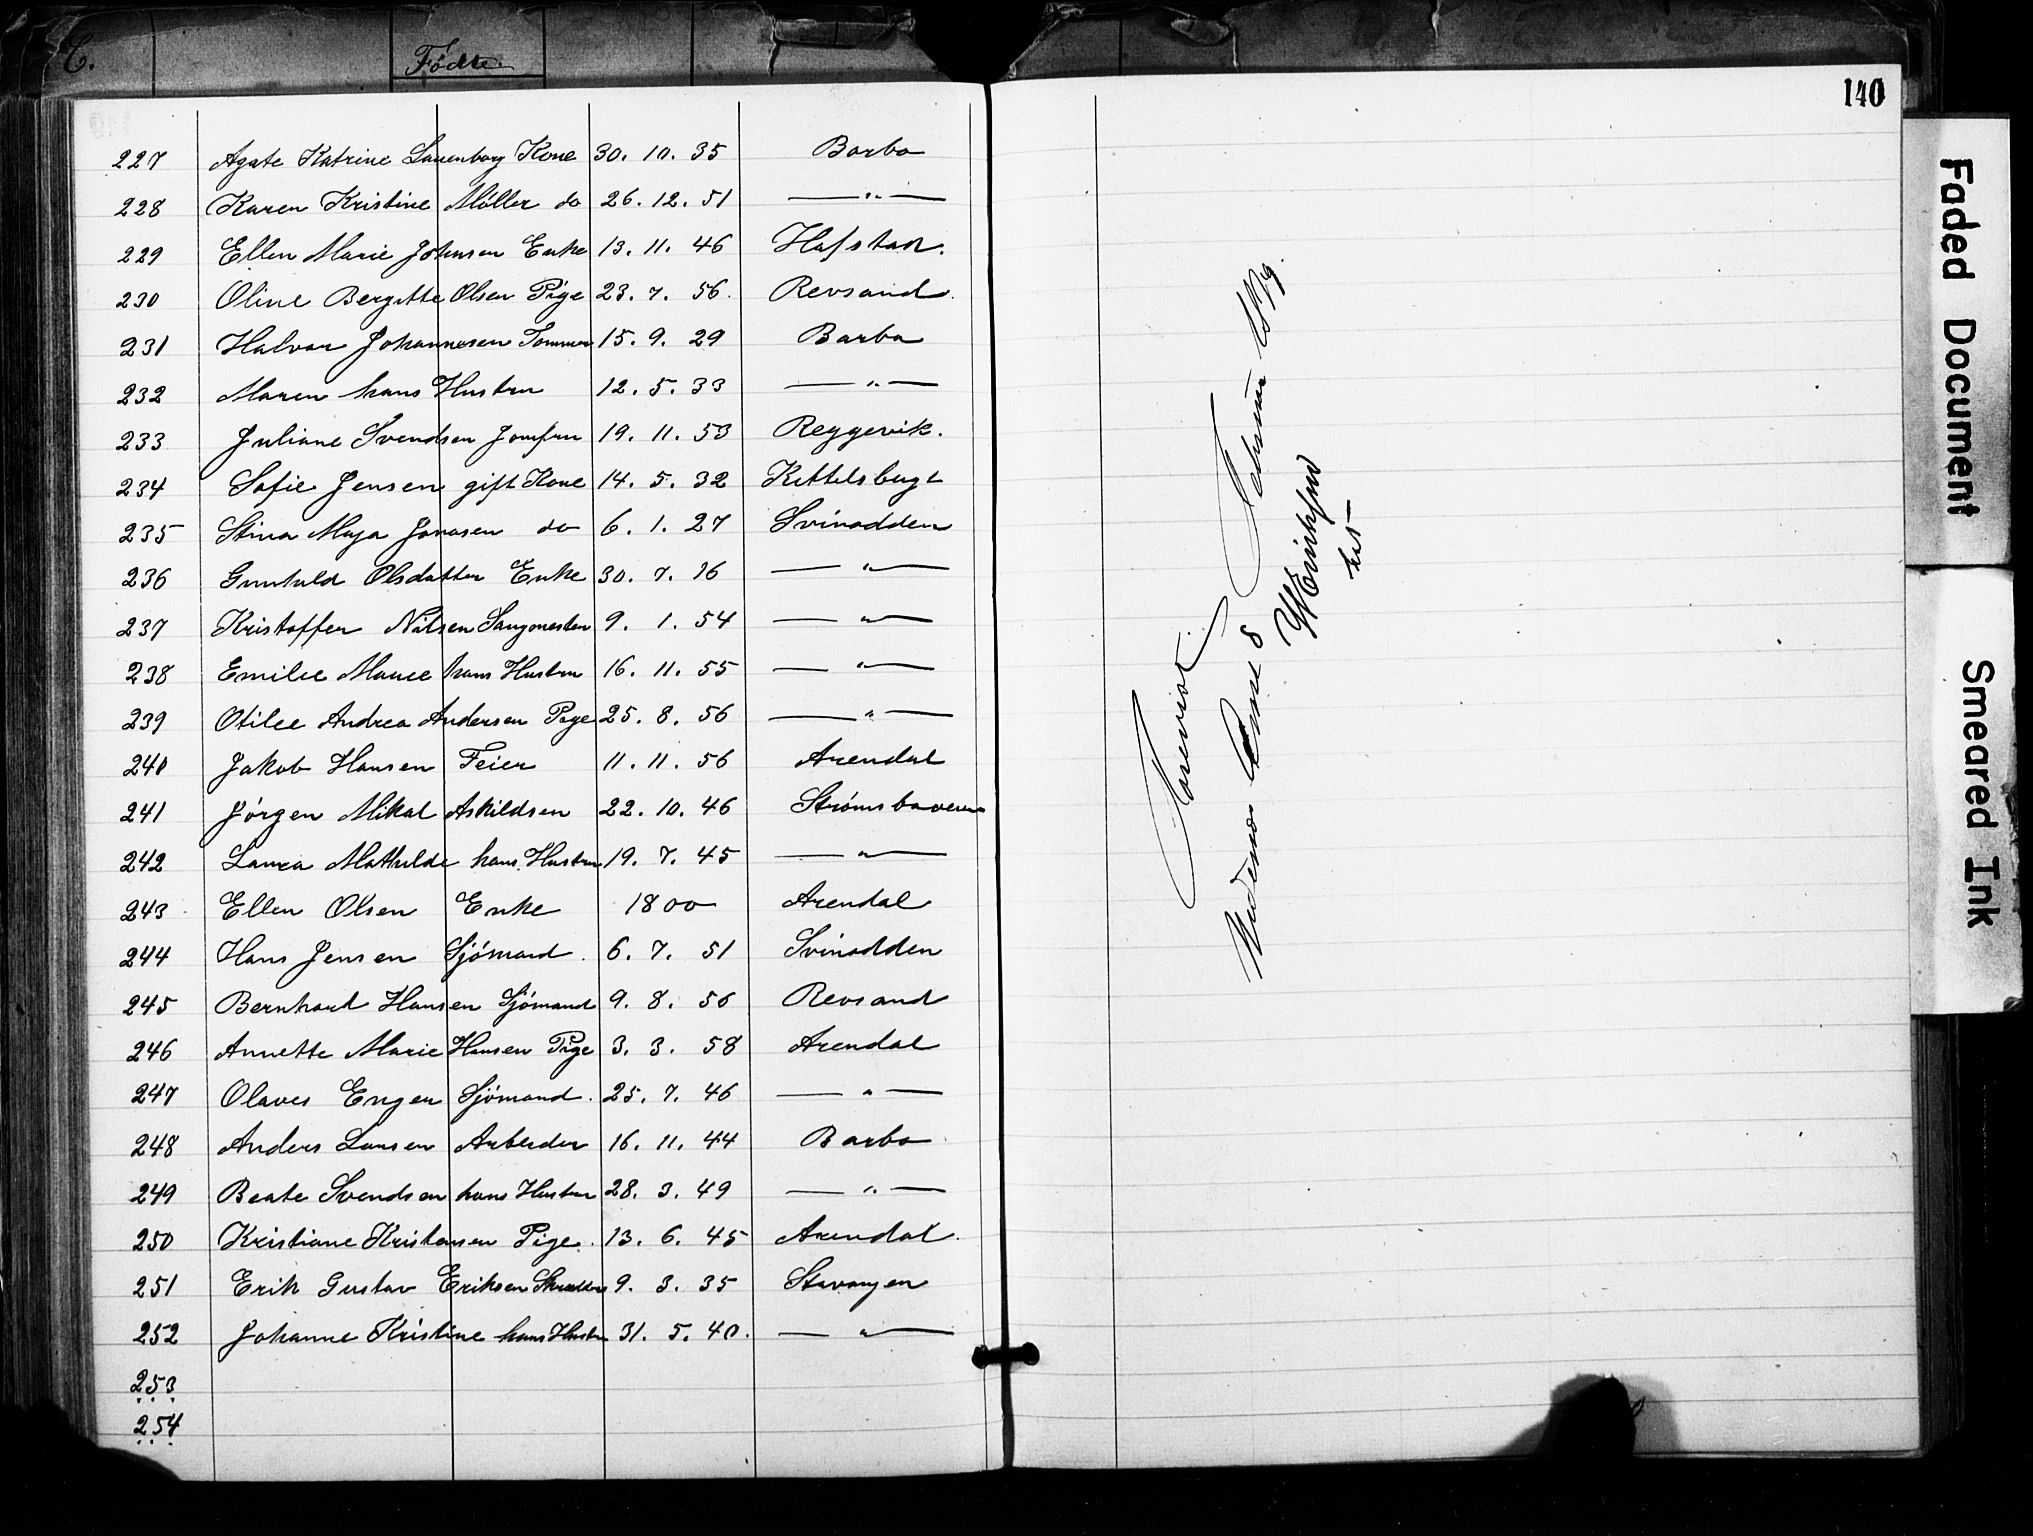 C.
Fødte.
140
227 Agate Katrine Lauenborg Kone 30. 10. 35 Barbo
228 Karen Kristine Møller do 26. 12. 51 — " —
229 Ellen Marie Johnsen Enke 13. 11. 46 Hafstad.
230 Oline Bergitte Olsen Pige 23. 7. 56. Revsand.
231 Halvor Johannesen Tømmer 15. 9. 29 Barbo
232 Maren hans Hustru 12. 5. 33 — " —
233 Juliane Svendsen Jomfru 19. 11. 53 Reggevik.
234 Sofie Jensen gift Kone 14. 5. 32 Kittelsbugt
235 Stina Maja Jonasen do 6. 1. 27 Svinodden
236 Gunhild Olsdatter Enke 30. 7. 16 — " —
237 Kristoffer Nilsen 9. 1. 54 — " —
238 Emilie Marie hans Hustru 16. 11. 55 — " —
239 Otilie Andrea Andersen Pige 25. 8. 56 — " —
240 Jakob Hansen Feier 11. 11. 56 Arendal
241 Jørgen Mikal Askildsen 22. 10. 46
242 Laura Mathilde hans Hustru 19. 7. 45 — " —
243 Ellen Olsen Enke 1800 Arendal
244 Hans Jensen Sjømand. 6. 7. 51 Svinodden
245 Bernhard Hansen Sjømand 9. 8. 56 Revsand
246 Annette Marie Hansen Pige 3. 3. 58 Arendal
247 Olaves Enger Sjømand. 25. 7. 46 — " —
248 Anders Larsen Arbeider 16. 11. 44 Barbo
249 Beate Svendsen hans Hustru 28. 3. 49 — " —
250 Kristiane Kristensen Pige. 13. 6. 45 Arendal.
251 Erik Gustav Eriksen Skrædder 9. 3. 35 Stavanger
252 Johanne Kristine hans Hustru 31. 5. 40. — " —
253
254
Faded Document
Smeared Ink